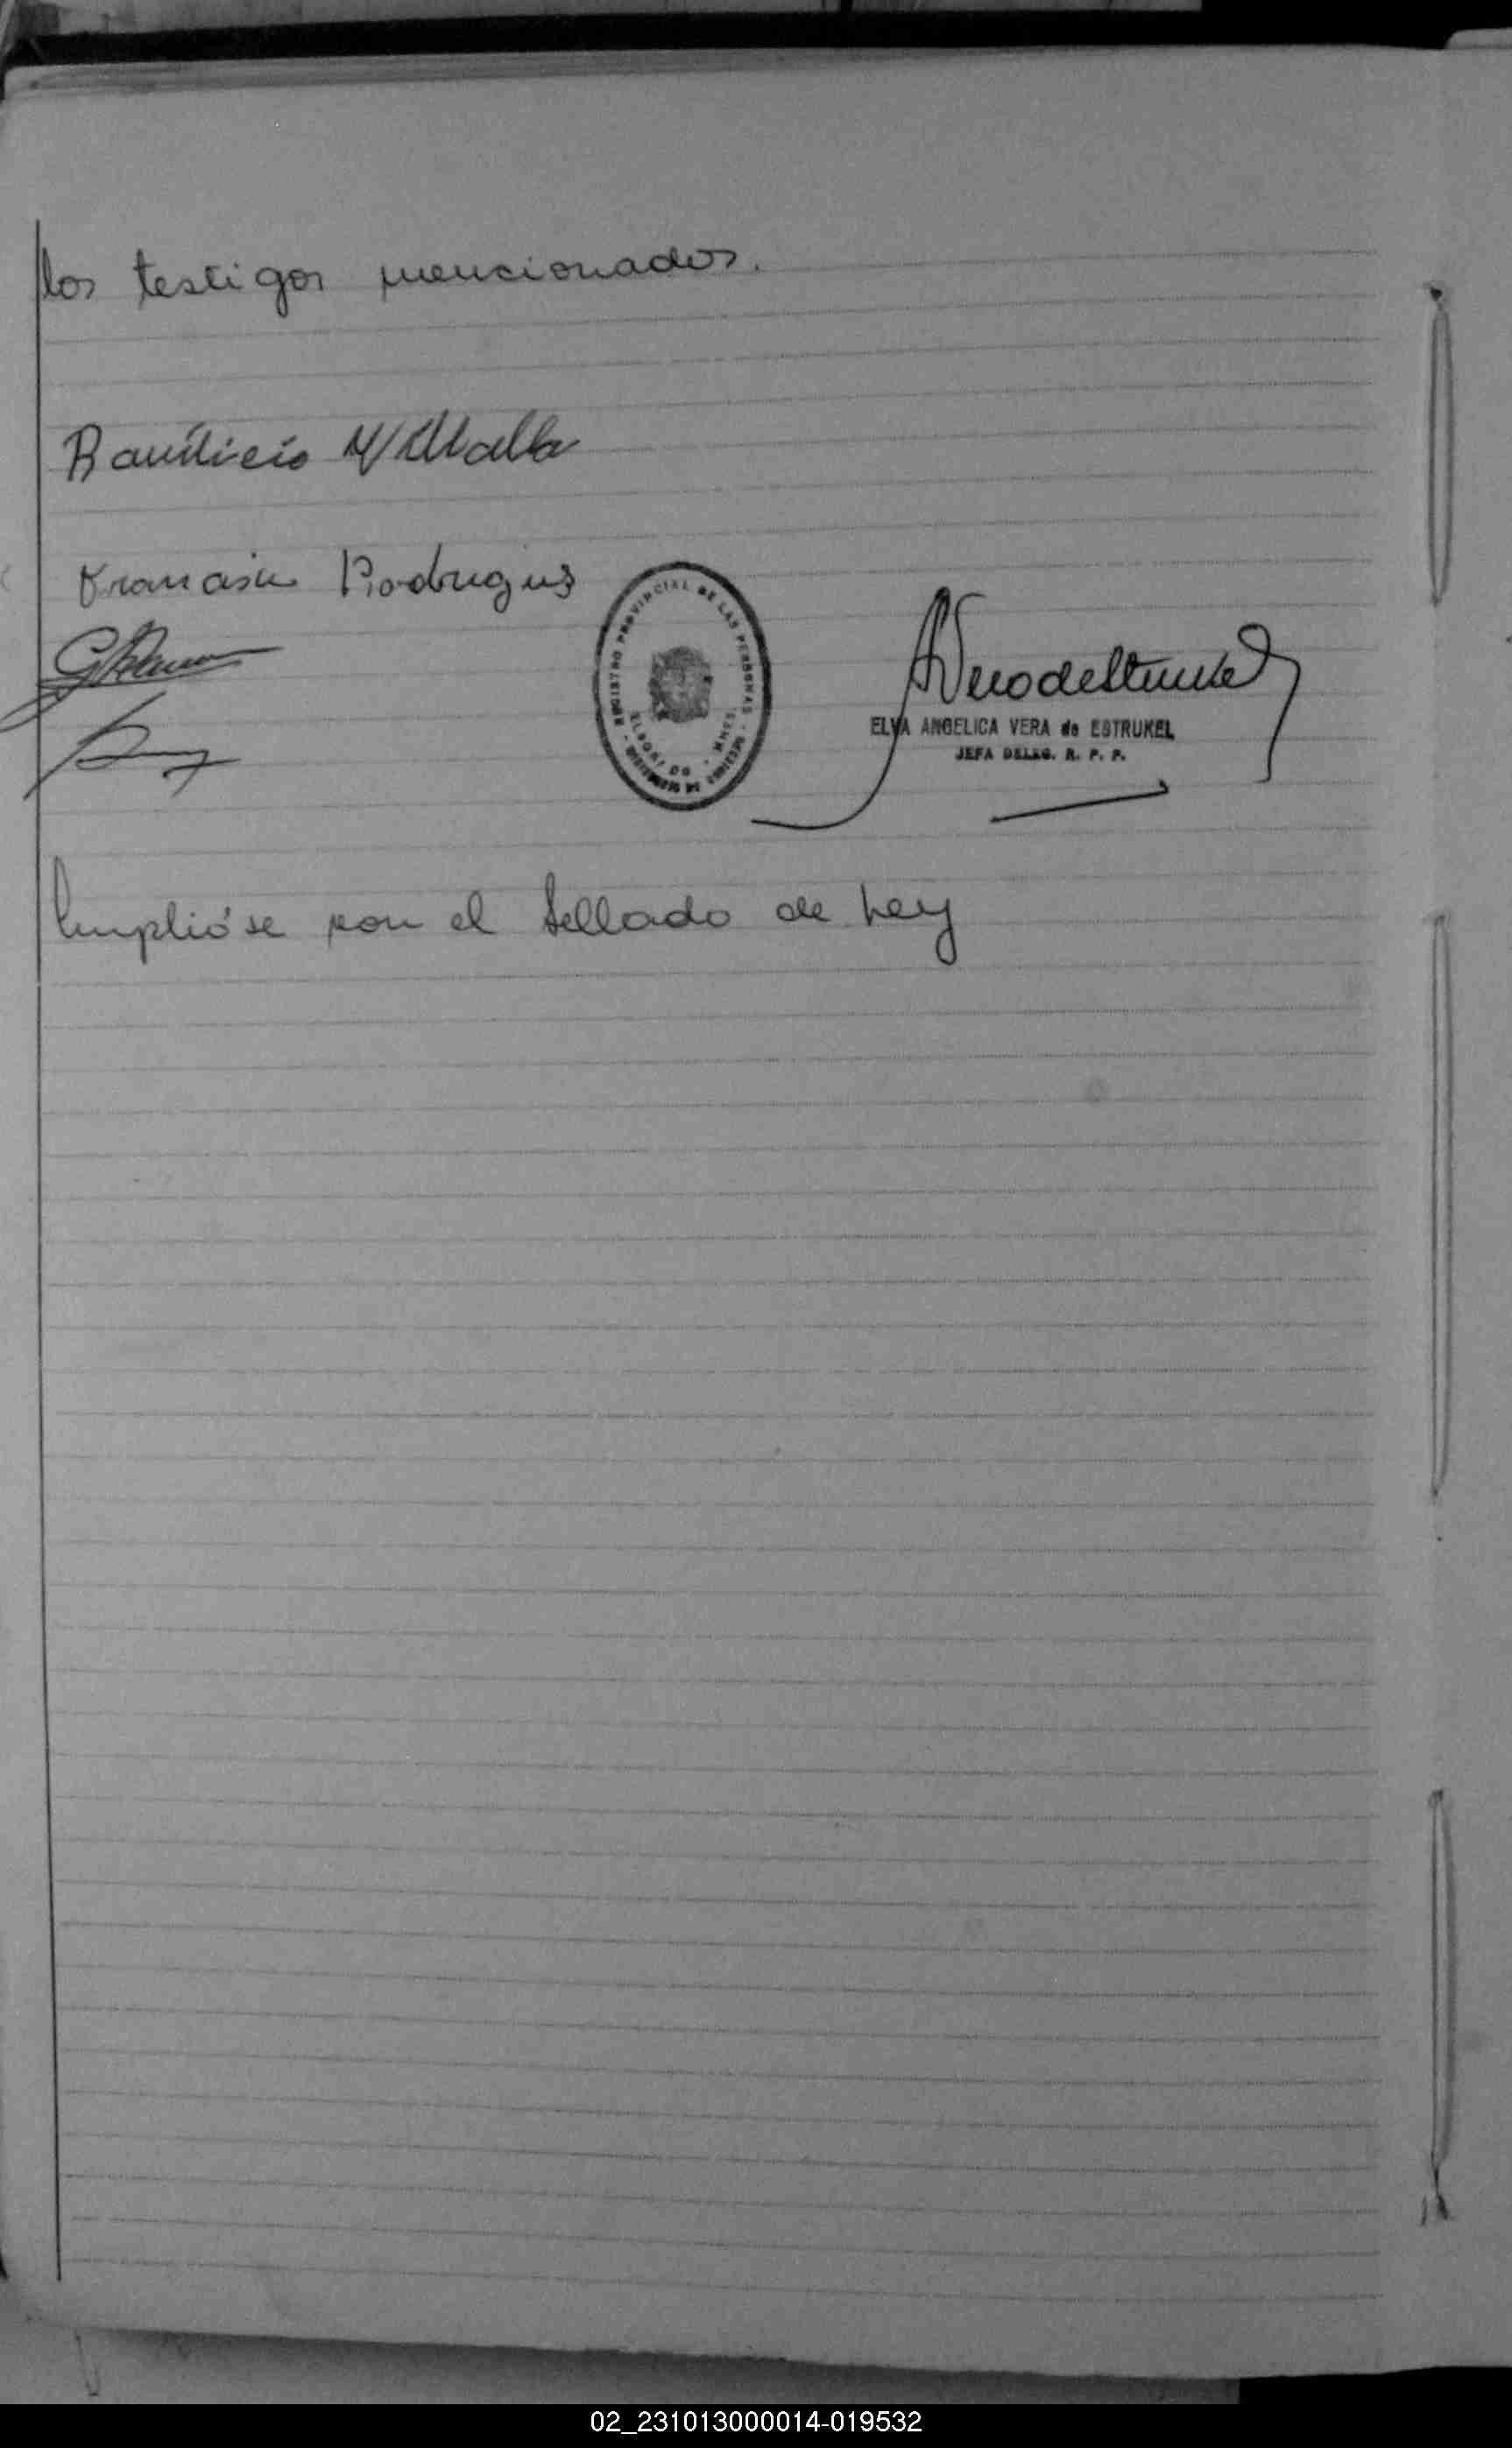 los testigos mencionados.
Baudilicio Villalba
Francisco Rodrigues
REGISTRO PROVINCIAL DE LAS PERSONAS
ELDORADO - MNES.
ELVA ANGELICA VERA de ESTRUKEL
JEFA DELEG. R. P. P.
Cumplióse con el Sellado de Ley
02_231013000014-019532